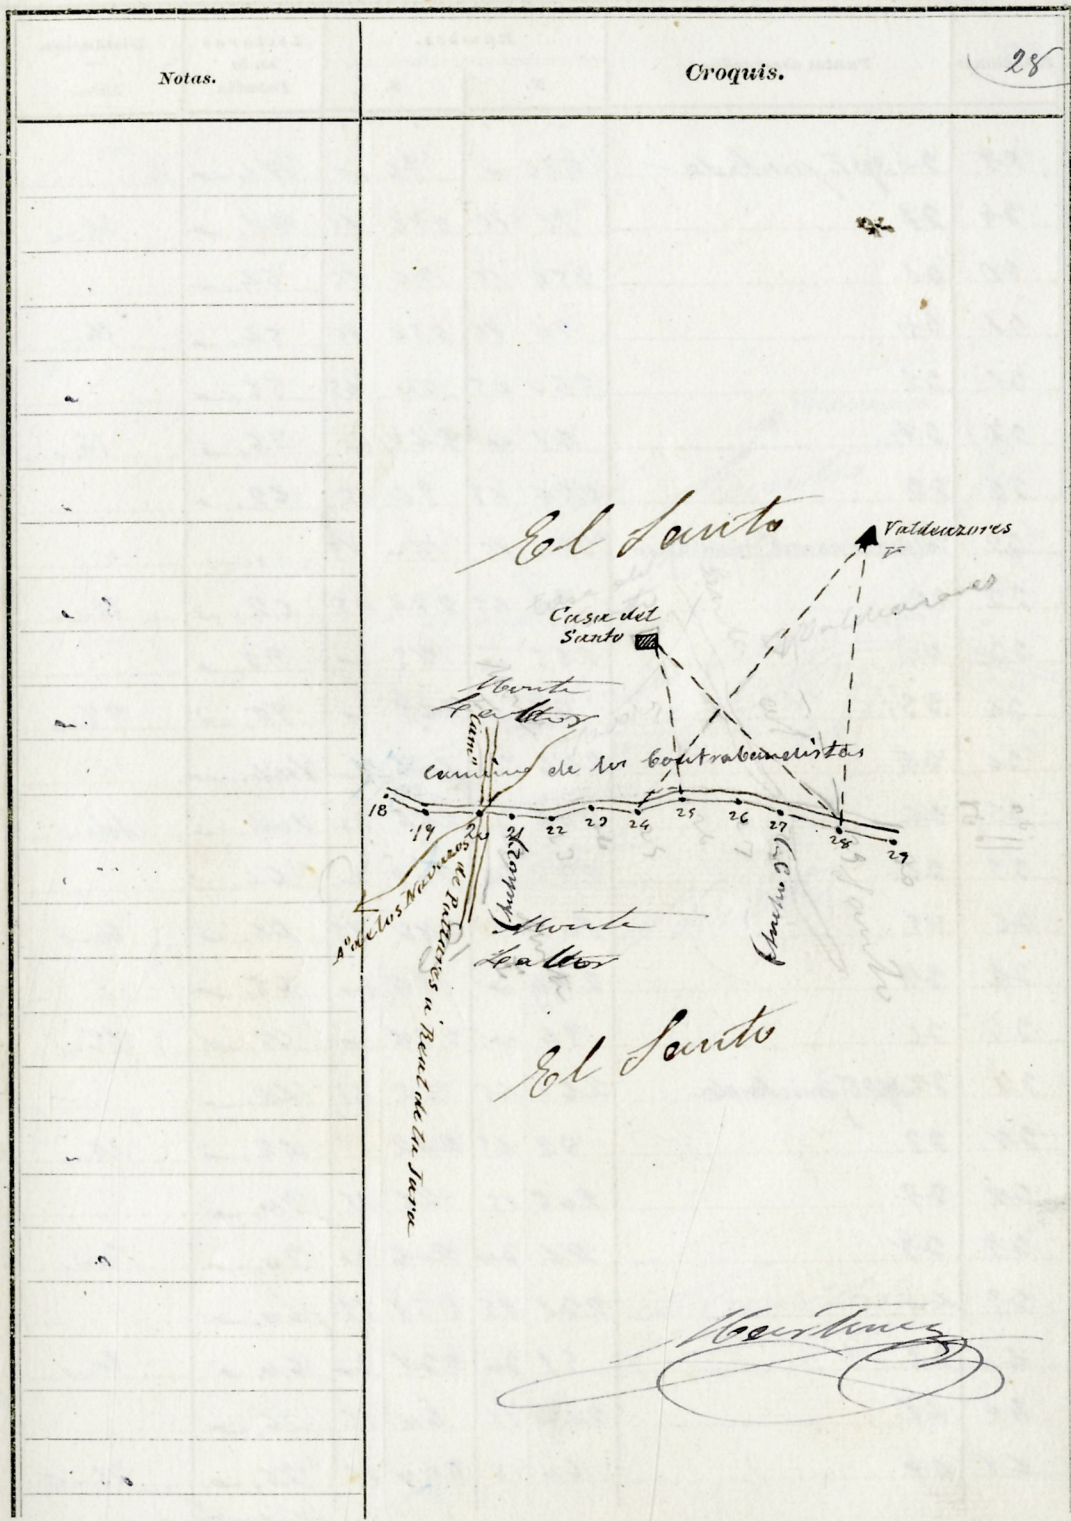 Notas.
Croquis.
28
El Santo
Valdeazores
Casa del
Santo
Monte
Camº
Camino de los Contrabandistas
18
19
20
21
22
23
24
25
26
27
28
29
Aº de los Navaros
de Pallares a Real de la Jara
Monte
El Santo
Martinez